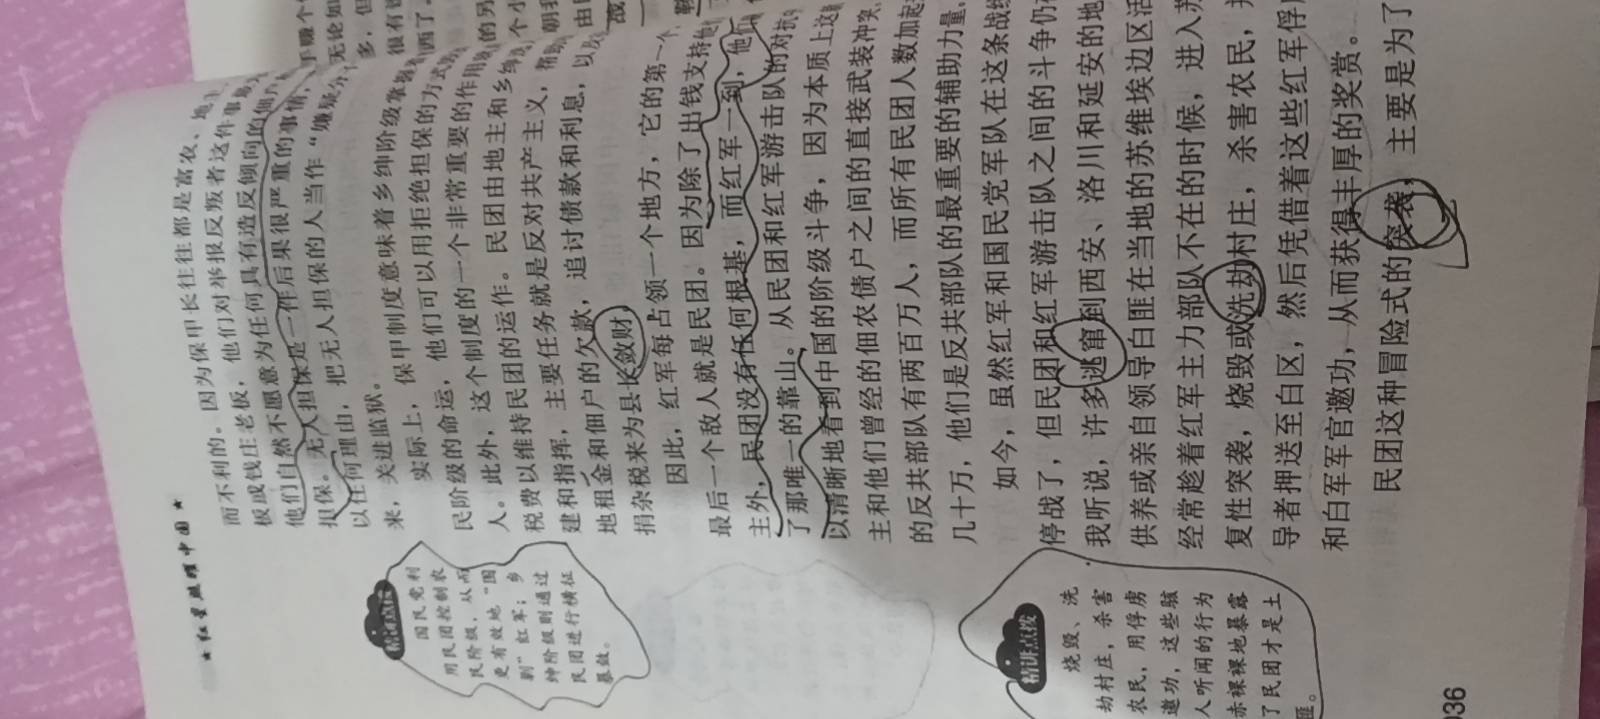 ★红星照耀中国★
而不利的。因为保甲长往往都是富农、地主
板或钱庄老板，他们对举报反叛者这件事
他们自然不愿意为任何具有造反倾向的佃户
担保。无人担保是一件后果很严重的事情，
以任何理由，把无人担保的人当作“嫌疑分
来，关进监狱。
实际上，保甲制度意味着乡绅阶级掌
民阶级的命运，他们可以用拒绝担保的方式
人。此外，这个制度的一个非常重要的作用
税费以维持民团的运作。民团由地主和乡绅
建和指挥，主要任务就是反对共产主义，帮
地租金和佃户的欠款，追讨债款和利息，以及
捐杂税来为县长敛财。
因此，红军每占领一个地方，它的第一个
最后一个敌人就是民团。因为除了出钱支持他
主外，民团没有任何根基，而红军一到，他
了那唯一的靠山。从民团和红军游击队的对抗
以清晰地看到中国的阶级斗争，因为本质上这
主和他们曾经的佃农债户之间的直接武装冲突
的反共部队有两百万人，而所有民团人数加起
几十万，他们是反共部队的最重要的辅助力量。
如今，虽然红军和国民党军队在这条战
停战了，但民团和红军游击队之间的斗争仍
我听说，许多逃窜到西安、洛川和延安的地
供养或亲自领导白匪在当地的苏维埃边区活
经常趁着红军主力部队不在的时候，进入苏
复性突袭，烧毁或洗劫村庄，杀害农民，
导者押送至白区，然后凭借着这些红军俘
和白军军官邀功，从而获得丰厚的奖赏。
民团这种冒险式的突袭，主要是为了
国民党利
用民团控制农
民阶级，从而
更有效地“围
剿”红军；乡
绅阶级则通过
民团进行横征
暴敛。
精讲点拨
烧毁、洗
劫村庄，杀害
农民，用俘虏
邀功，这些骇
人听闻的行为
赤裸裸地暴露
了民团才是土
匪。
036